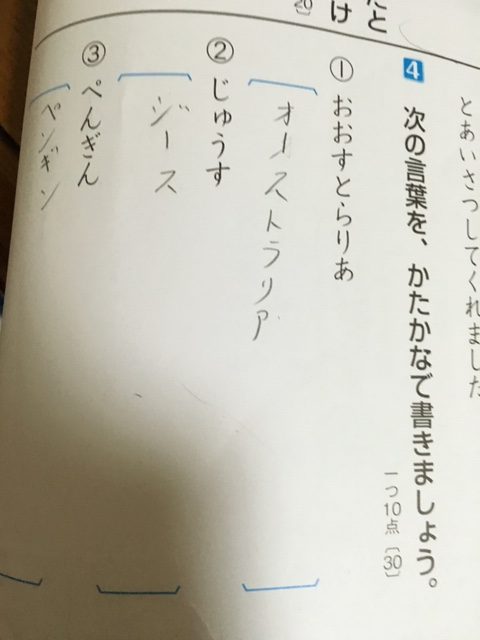 とあいさつしてくれました
4 次の言葉を、かたかなで書きましょう。
一つ10点〔30〕
① おおすとらりあ
オーストラリア
② じゅうす
ジース
③ ぺんぎん
ペンギン